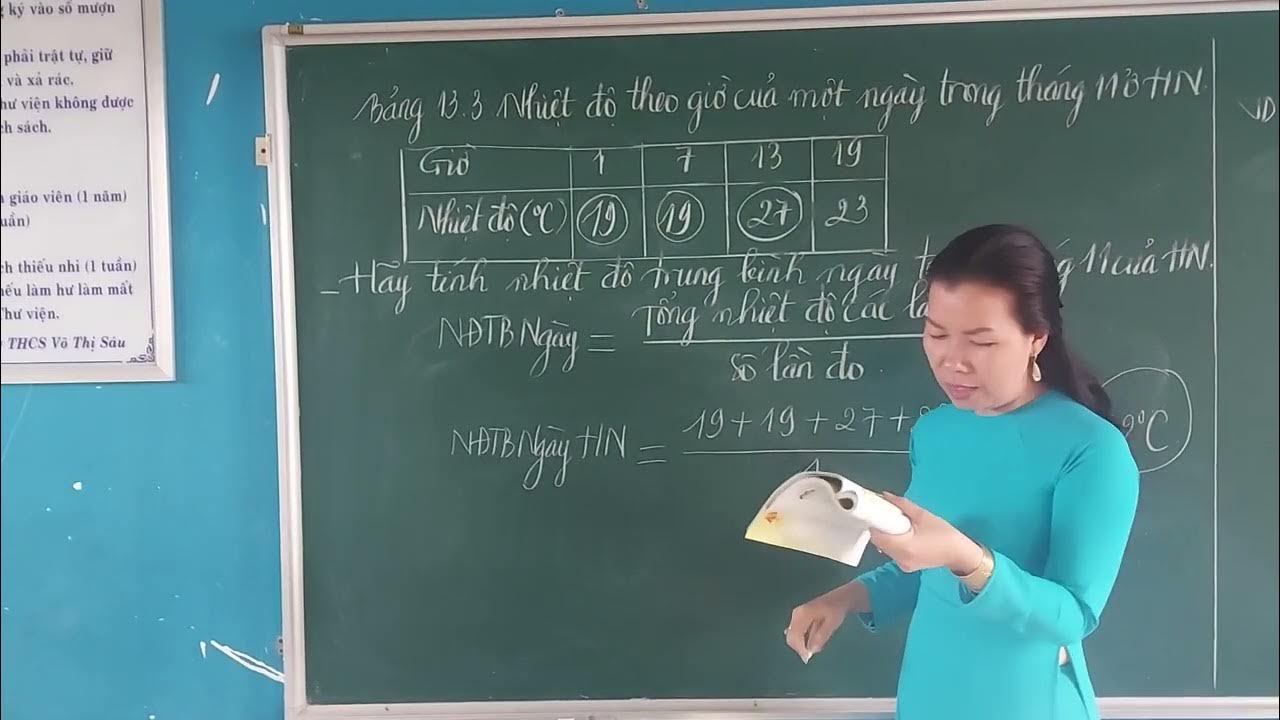 ký vào sổ mượn
phải trật tự, giữ
và xả rác.
thư viện không được
sách.
giáo viên (1 năm)
tuần)
thiếu nhi (1 tuần)
nếu làm hư làm mất
Thư viện.
THCS Võ Thị Sáu
Bảng 13.3 Nhiệt độ theo giờ của một ngày trong tháng 11 ở HN.
Giờ 1 7 13 19
Nhiệt độ (°C) 19 19 27 23
- Hãy tính nhiệt độ trung bình ngày 11 của HN.
NĐTB Ngày = Tổng nhiệt độ các
số lần đo.
NĐTB Ngày HN = 19 + 19 + 27 +
°C
VD